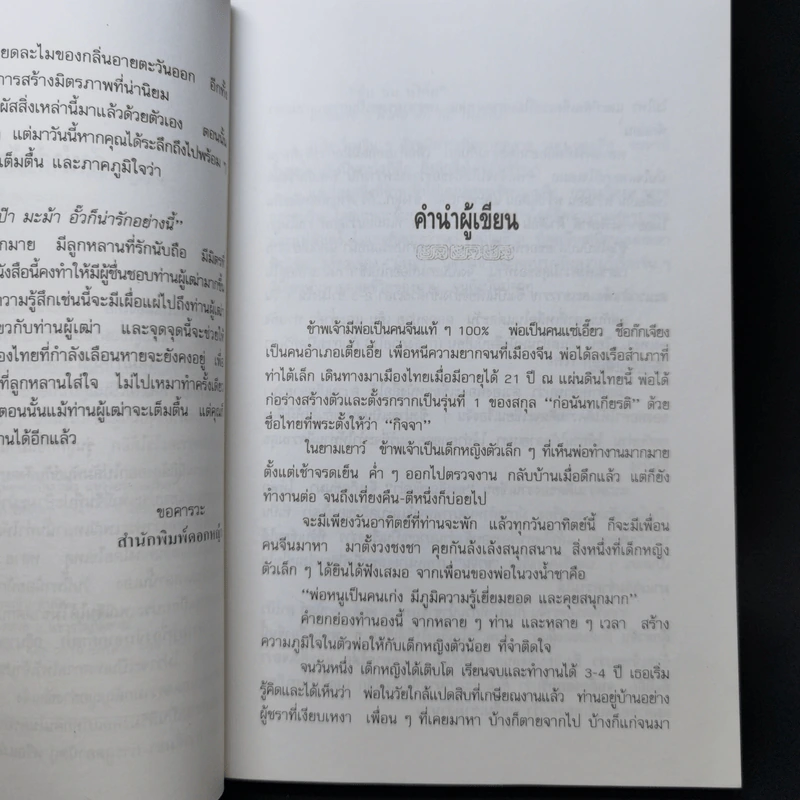 ยดละไมของกลิ่นอายตะวันออก อีกทั้ง
การสร้างมิตรภาพที่น่านิยม
ผัสสิ่งเหล่านี้มาแล้วด้วยตัวเอง ตอนนั้น
แต่มาวันนี้หากคุณได้ระลึกถึงไปพร้อม ๆ
เต็มตื้น และภาคภูมิใจว่า
ป๊า มะม้า อั๊วก็น่ารักอย่างนี้”
กมาย มีลูกหลานที่รักนับถือ
นังสือนี้คงทำให้มีผู้ชื่นชอบท่านผู้เฒ่ามากขึ้น
ความรู้สึกเช่นนี้จะมีเผื่อแผ่ไปถึงท่านผู้เฒ่า
ยวกับท่านผู้เฒ่า และจุดจุดนี้จะช่วยให้
องไทยที่กำลังเลือนหายจะยังคงอยู่ เพื่อ
ที่ลูกหลานใส่ใจ ไม่ไปเหมาทำครั้งเดียว
ตอนนั้นแม้ท่านผู้เฒ่าจะเต็มตื้น แต่คุณก็
านได้อีกแล้ว
ขอคารวะ
สำนักพิมพ์ดอกหญ้า
คำนำผู้เขียน
ข้าพเจ้ามีพ่อเป็นคนจีนแท้ ๆ 100% พ่อเป็นคนแซ่เอี๊ยว ชื่อก๊กเจียง
เป็นคนอำเภอเตี้ยเอี้ย เพื่อหนีความยากจนที่เมืองจีน พ่อได้ลงเรือสำเภาที่
ท่าไต้เล้ก เดินทางมาเมืองไทยเมื่อมีอายุได้ 21 ปี ณ แผ่นดินไทยนี้ พ่อได้
ก่อร่างสร้างตัวและตั้งรกรากเป็นรุ่นที่ 1 ของสกุล “ก่อนันทเกียรติ” ด้วย
ชื่อไทยที่พระตั้งให้ว่า “กิจจา”
ในยามเยาว์ ข้าพเจ้าเป็นเด็กหญิงตัวเล็ก ๆ ที่เห็นพ่อทำงานมากมาย
ตั้งแต่เช้าจรดเย็น ค่ำ ๆ ออกไปตรวจงาน กลับบ้านเมื่อดึกแล้ว แต่ก็ยัง
ทำงานต่อ จนถึงเที่ยงคืน-ตีหนึ่งก็บ่อยไป
จะมีเพียงวันอาทิตย์ที่ท่านจะพัก แล้วทุกวันอาทิตย์นี้ ก็จะมีเพื่อน
คนจีนมาหา มาตั้งวงชงชา คุยกันล้งเล้งสนุกสนาน สิ่งหนึ่งที่เด็กหญิง
ตัวเล็ก ๆ ได้ยินได้ฟังเสมอ จากเพื่อนของพ่อในวงน้ำชาคือ
“พ่อหนูเป็นคนเก่ง มีภูมิความรู้เยี่ยมยอด และคุยสนุกมาก”
คำยกย่องทำนองนี้ จากหลาย ๆ ท่าน และหลาย ๆ เวลา สร้าง
ความภูมิใจในตัวพ่อให้กับเด็กหญิงตัวน้อย ที่จำติดใจ
จนวันหนึ่ง เด็กหญิงได้เติบโต เรียนจบและทำงานได้ 3-4 ปี เธอเริ่ม
รู้คิดและได้เห็นว่า พ่อในวัยใกล้แปดสิบที่เกษียณงานแล้ว ท่านอยู่บ้านอย่าง
ผู้ชราที่เงียบเหงา เพื่อน ๆ ที่เคยมาหา บ้างก็ตายจากไป บ้างก็แก่จนมา